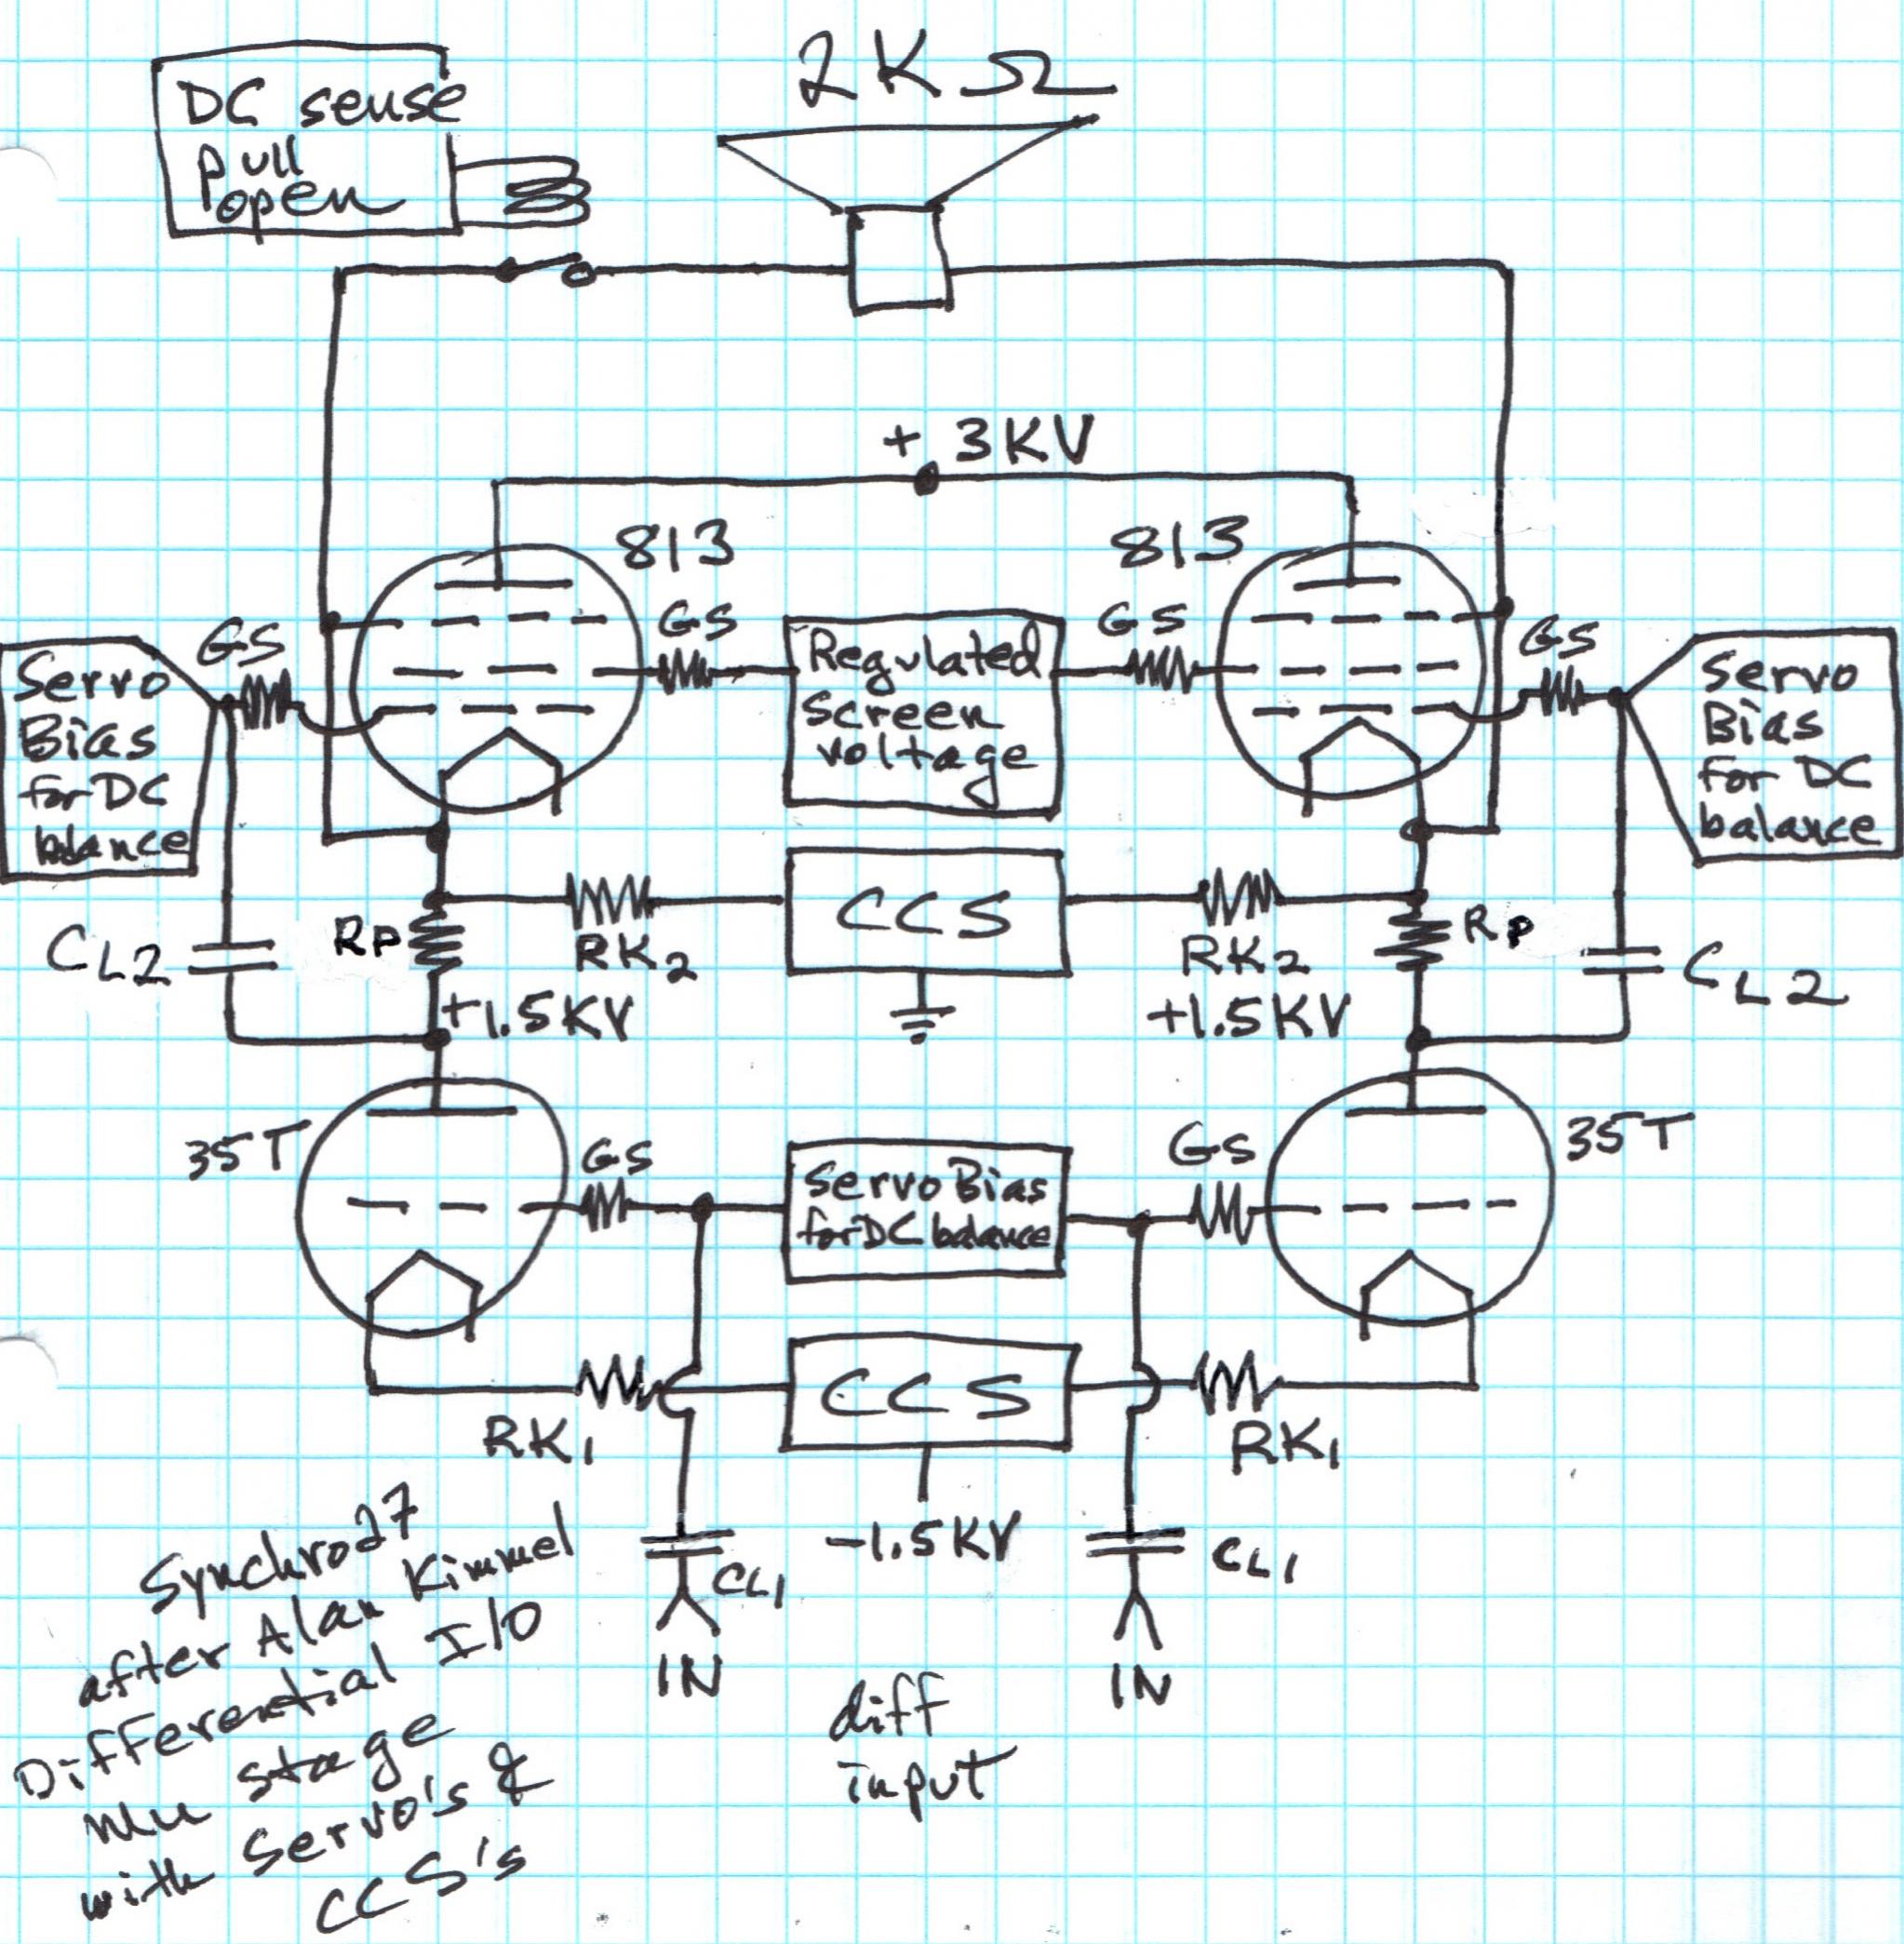 2KΩ
DC sense
pull
open
+ 3KV
813
813
GS
GS
GS
GS
Servo
Bias
for DC
balance
Regulated
Screen
voltage
Servo
Bias
for DC
balance
CCS
CL2
RP
RK2
RK2
RP
CL2
+1.5KV
+1.5KV
35T
GS
Servo Bias
for DC balance
GS
35T
CCS
RK1
RK1
-1.5KV
CL1
CL1
IN
IN
diff
input
Synchro27
after Alan Kimmel
Differential I/O
Mu stage
with Servo's &
CCS's